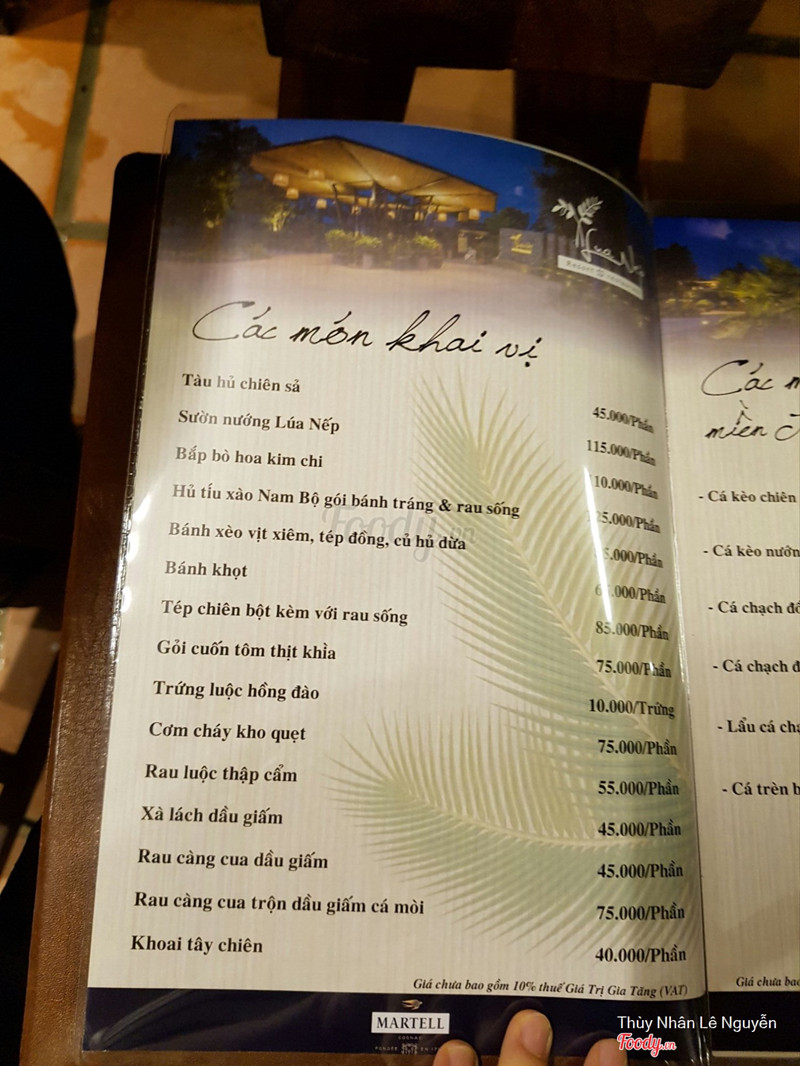 Lúa Nếp
Các món khai vị
Tàu hủ chiên sả 45.000/Phần
Sườn nướng Lúa Nếp 115.000/Phần
Bắp bò hoa kim chi 110.000/Phần
Hủ tíu xào Nam Bộ gói bánh tráng & rau sống 125.000/Phần
Bánh xèo vịt xiêm, tép đồng, củ hủ dừa
Bánh khọt
Tép chiên bột kèm với rau sống 85.000/Phần
Gỏi cuốn tôm thịt khìa 75.000/Phần
Trứng luộc hồng đào 10.000/Trứng
Cơm cháy kho quẹt 75.000/Phần
Rau luộc thập cẩm 55.000/Phần
Xà lách dầu giấm 45.000/Phần
Rau càng cua dầu giấm 45.000/Phần
Rau càng cua trộn dầu giấm cá mòi 75.000/Phần
Khoai tây chiên 40.000/Phần
Giá chưa bao gồm 10% thuế Giá Trị Gia Tăng (VAT)
MARTELL
COGNAC
Các
miền
- Cá kèo chiên
- Cá kèo nướn
- Cá chạch đồ
- Cá chạch đ
- Lẩu cá chạ
- Cá trèn b
Giá chưa bao
Foody.vn
Thùy Nhân Lê Nguyễn
Foody.vn